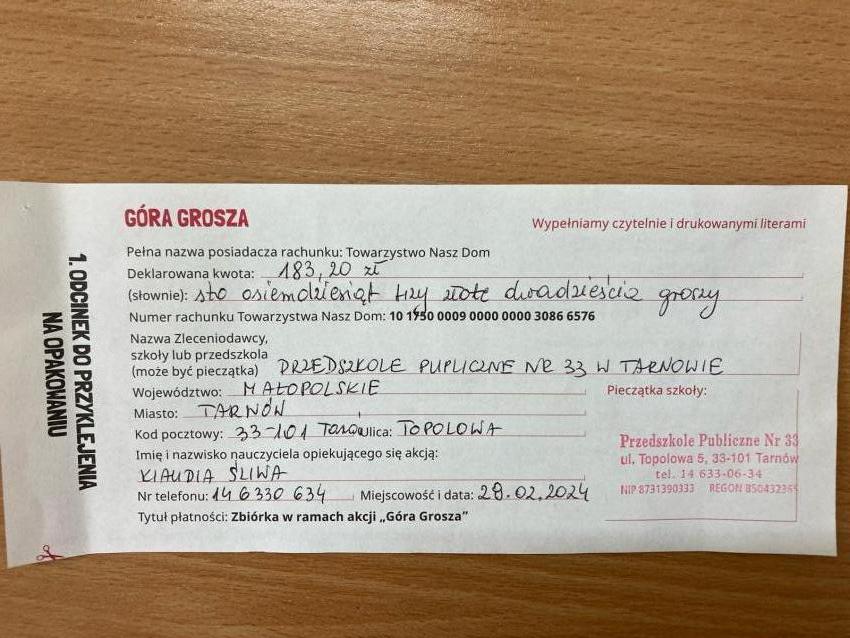 1. ODCINEK DO PRZYKLEJENIA
NA OPAKOWANIU
GÓRA GROSZA
Wypełniamy czytelnie i drukowanymi literami
Pełna nazwa posiadacza rachunku: Towarzystwo Nasz Dom
Deklarowana kwota: 183,20 zł
(słownie): sto osiemdziesiąt trzy złote dwadzieścia groszy
Numer rachunku Towarzystwa Nasz Dom: 10 1750 0009 0000 0000 3086 6576
Nazwa Zleceniodawcy,
szkoły lub przedszkola
(może być pieczątka) PRZEDSZKOLE PUPLICZNE NR 33 W TARNOWIE
Województwo: MAŁOPOLSKIE
Pieczątka szkoły:
Miasto: TARNÓW
Kod pocztowy: 33-101 Ulica: TOPOLOWA
Imię i nazwisko nauczyciela opiekującego się akcją:
KLAUDIA ŚLIWA
Nr telefonu: 146330 634 Miejscowość i data: 28.02.2024
Tytuł płatności: Zbiórka w ramach akcji „Góra Grosza”
Przedszkole Publiczne Nr 33
ul. Topolowa 5, 33-101 Tarnów
tel. 14 633-06-34
NIP 8731390333 REGON